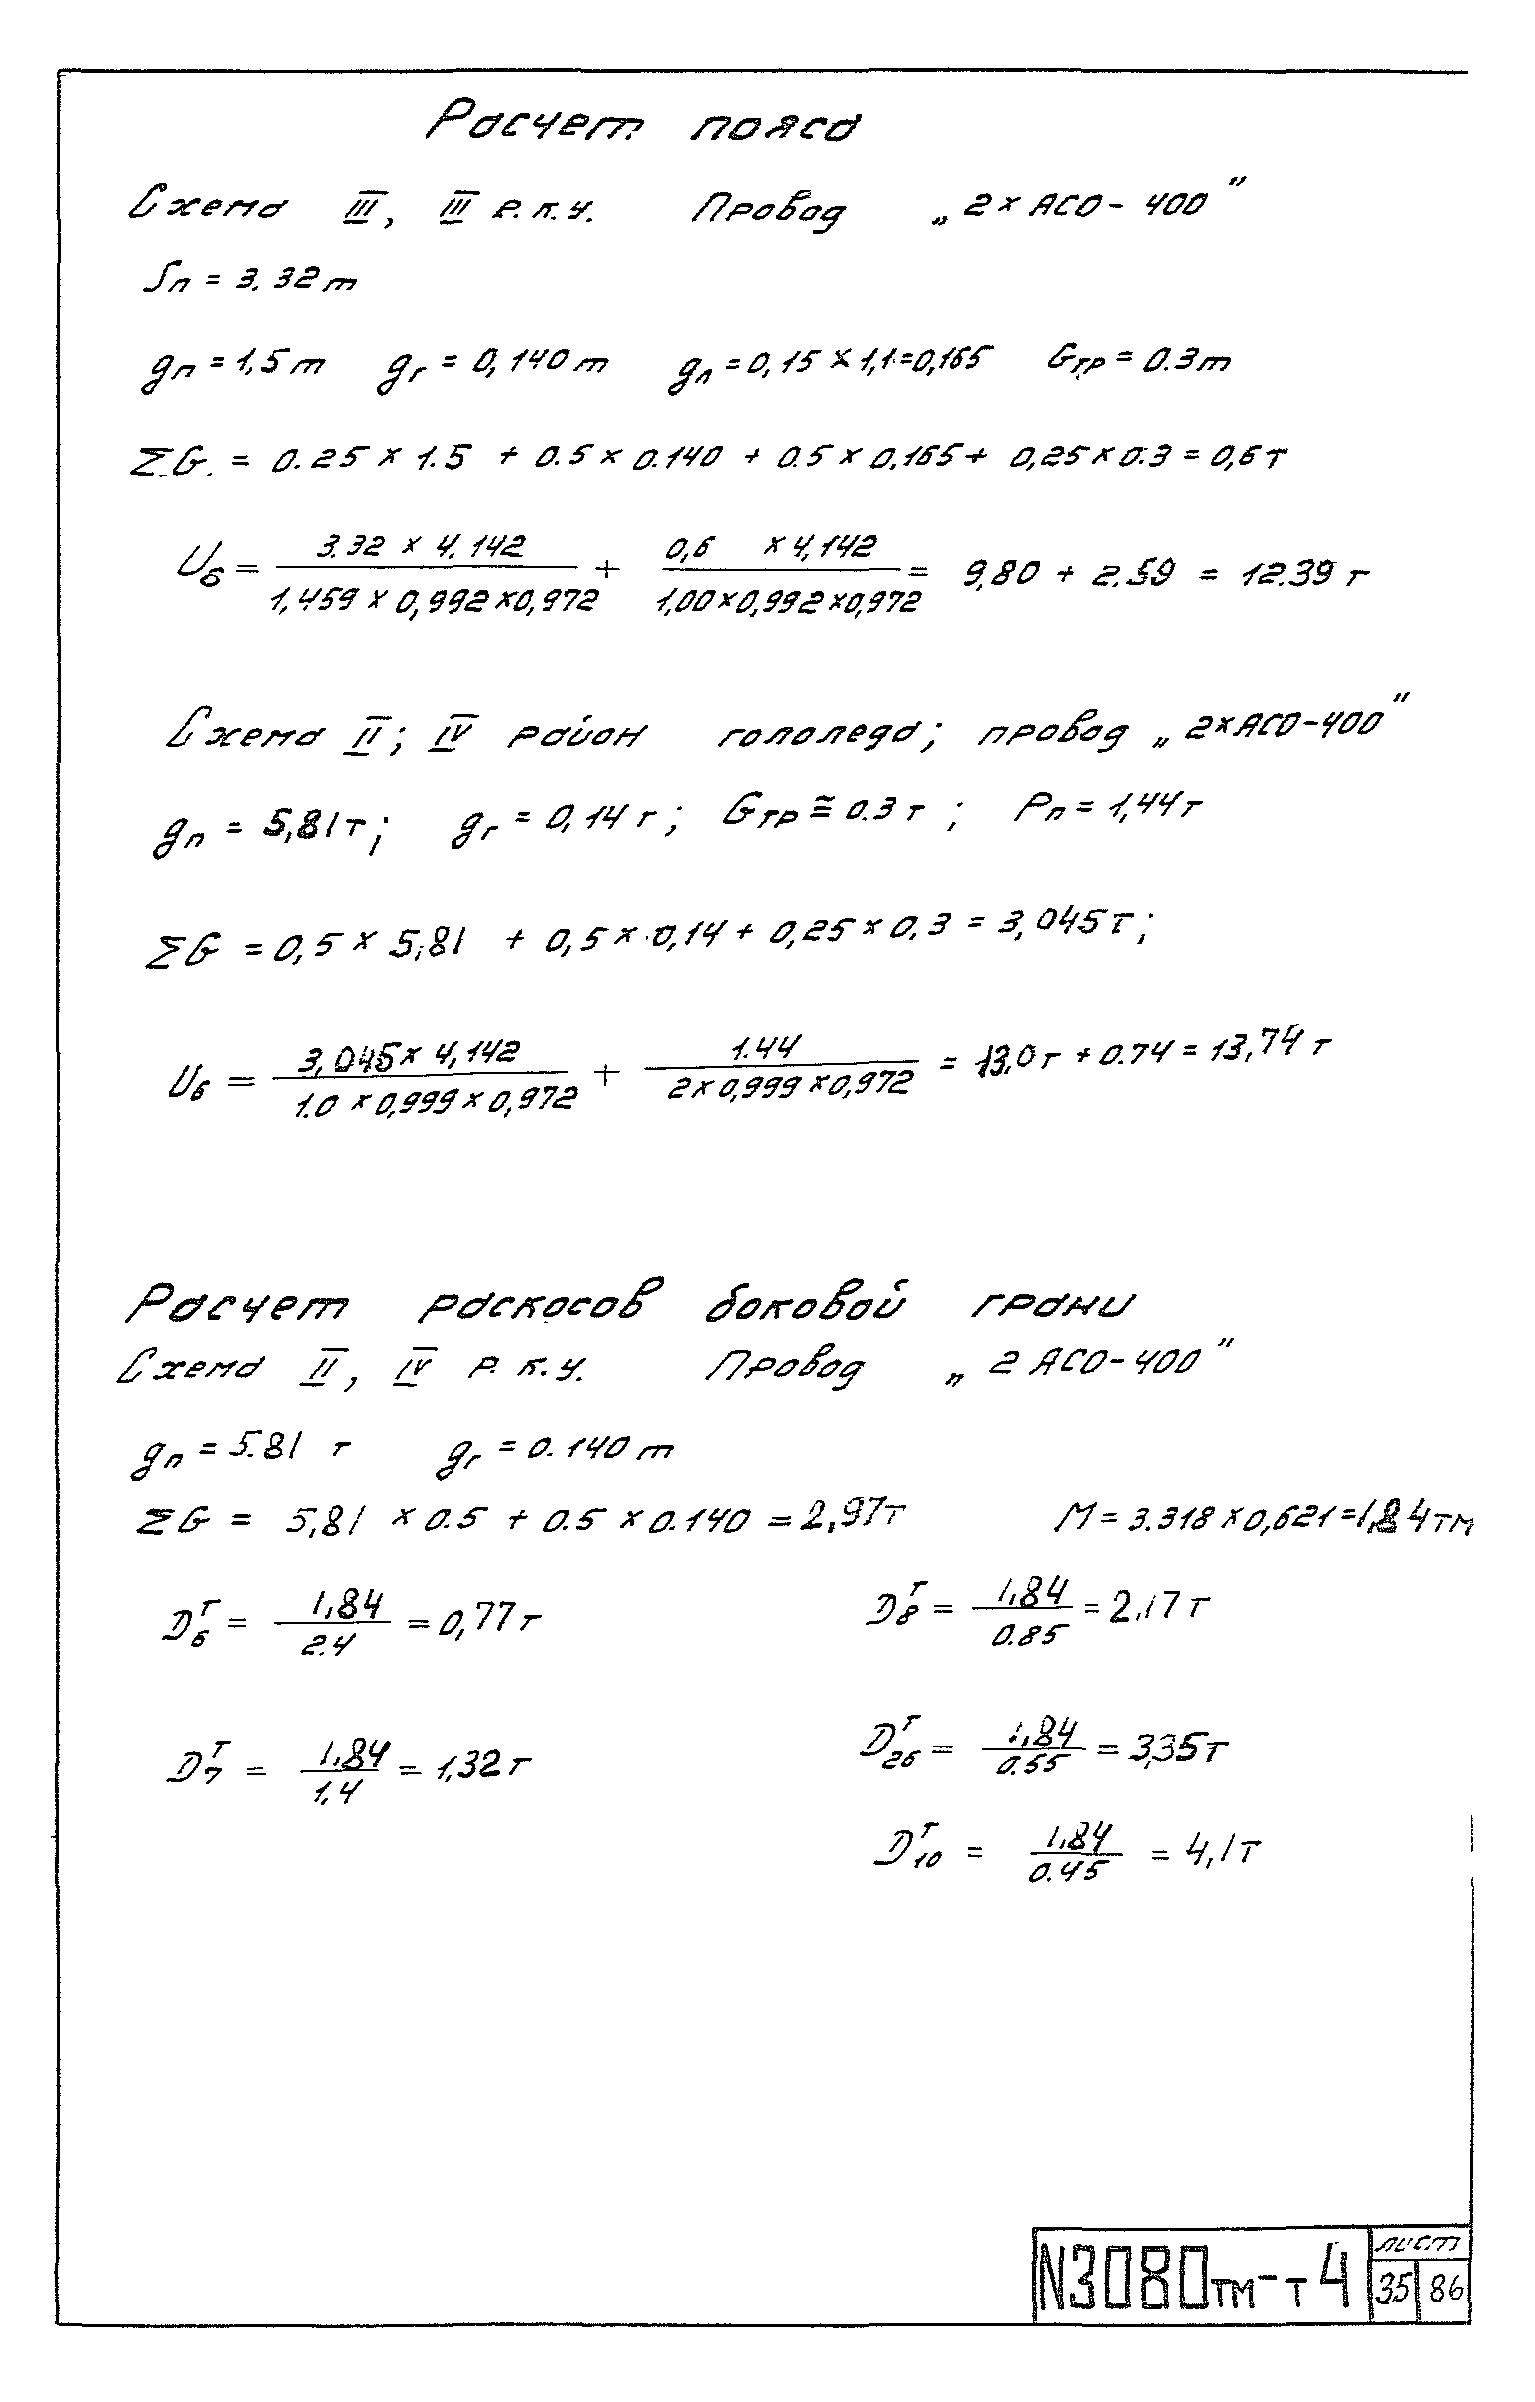 Расчет пояса
Схема III, III р.к.у. Провод „2×АСО-400"
Sп = 3.32 т
gп = 1,5 т gг = 0,140 т gл = 0,15 × 1,1 = 0,165 Gтр = 0.3 т
ΣG. = 0.25 × 1.5 + 0.5 × 0.140 + 0.5 × 0,165 + 0,25 × 0.3 = 0,6 т
U6 = 3.32 × 4.142 / 1,459 × 0,992 × 0,972 + 0,6 × 4,142 / 1,00 × 0,992 × 0,972 = 9,80 + 2.59 = 12.39 т
Схема II; IV район гололеда; провод „2×АСО-400"
gп = 5,81 т; gг = 0,14 т; Gтр ≅ 0.3 т; Pп = 1,44 т
ΣG = 0,5 × 5,81 + 0,5 × 0,14 + 0,25 × 0,3 = 3,045 т;
U6 = 3,045 × 4,142 / 1.0 × 0,999 × 0,972 + 1.44 / 2 × 0,999 × 0,972 = 13,0 т + 0.74 = 13,74 т
Расчет раскосов боковой грани
Схема II, IV р.к.у. Провод „2 АСО-400"
gп = 5.81 т gг = 0.140 т
ΣG = 5,81 × 0.5 + 0.5 × 0.140 = 2,97 т М = 3.318 × 0,621 = 1,84 тм
D6ᵀ = 1,84 / 2.4 = 0,77 т D8ᵀ = 1,84 / 0.85 = 2,17 т
D7ᵀ = 1.84 / 1,4 = 1,32 т D26ᵀ = 1,84 / 0.55 = 3,35 т
D10ᵀ = 1,84 / 0.45 = 4,1 т
N3080тм-т4 лист 35 86